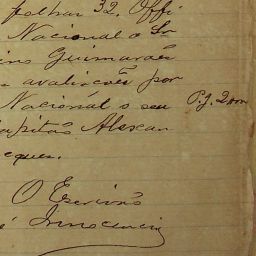 folhas 32. Offi
Nacional o Sr
ins Guimarães
avaliações por
Nacional o seu P.J. 2 om
apitão Alexan
cques.
O Escrivão
é Innocencio